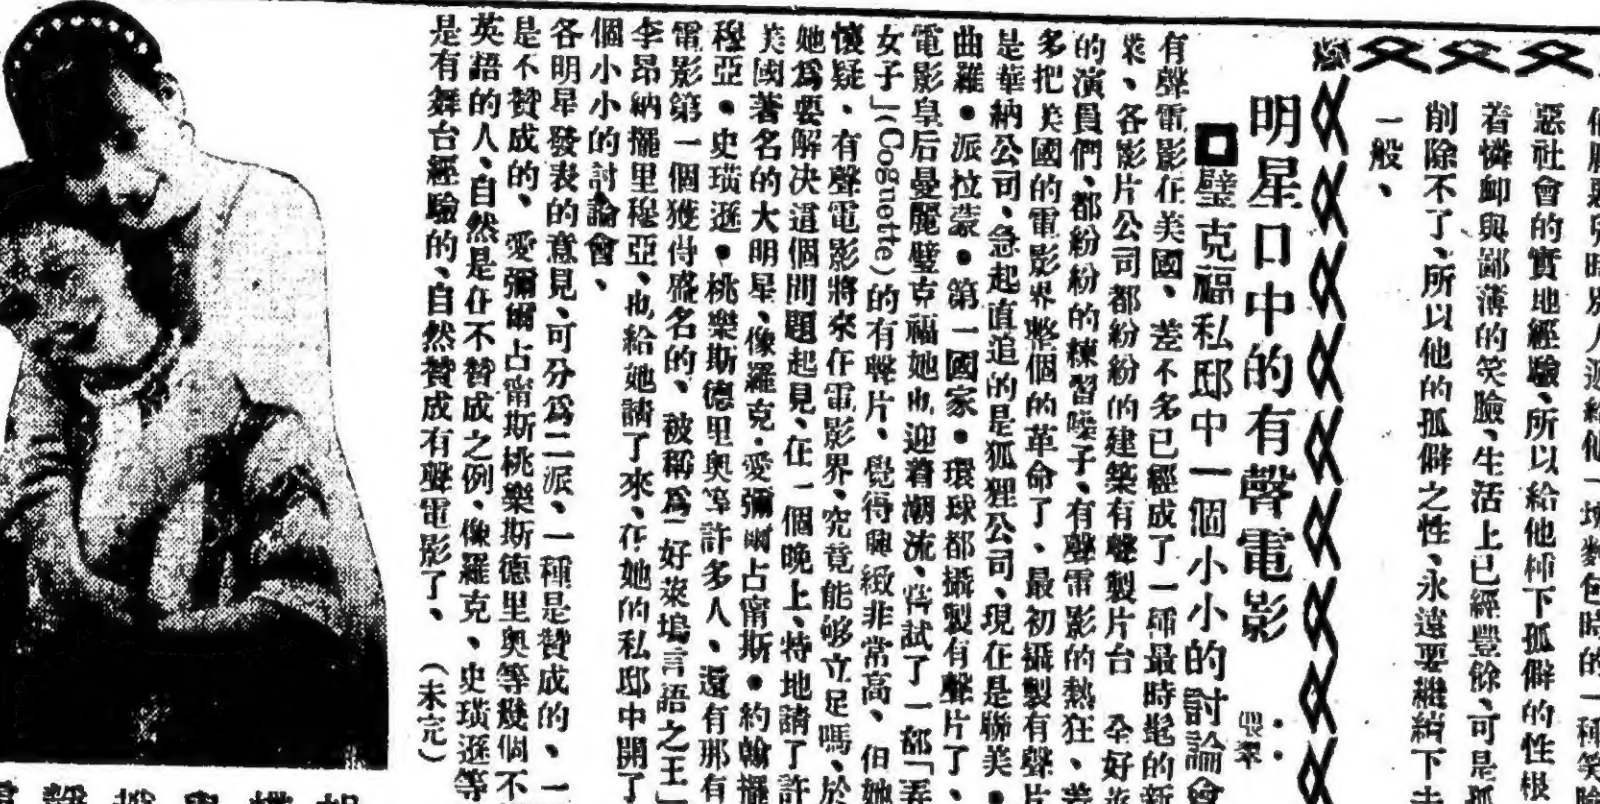 惡社會的實地經驗、所以給他種下孤僻的性根
着憐卹與鄙薄的笑臉、生活上已經豐餘、可是孤
削除不了、所以他的孤僻之性、永遠要繼續下去
一般、
明星口中的有聲電影
璧克福私邸中一個小小的討論會
有聲電影在美國、差不多已經成了一種最時髦的新
各影片公司都紛紛的建築有聲製片台 全好萊
的演員們、都紛紛的練習嗓子、有聲電影的熱狂、差
多把美國的電影界整個的革命了、最初攝製有聲片
是華納公司、急起直追的是狐狸公司、現在是聯美•
曲羅•派拉蒙•第一國家•環球都攝製有聲片了、
電影皇后曼麗璧克福她也迎着潮流、嘗試了一部「弄
女子」(Cognette)的有聲片、覺得興緻非常高、但她
懷疑、有聲電影將來在電影界、究竟能够立足嗎、於
她爲要解決這個問題起見、在一個晚上、特地請了許
美國著名的大明星、像羅克•愛彌爾占甯斯•約翰擺
穆亞•史璜遜•桃樂斯德里奧等許多人、還有那有
電影第一個獲得盛名的、被稱爲「好萊塢言語之王」
李昂納擺里穆亞、也給她請了來、在她的私邸中開了
個小小的討論會、
各明星發表的意見、可分爲二派、一種是贊成的、一
是不贊成的、愛彌爾占甯斯桃樂斯德里奧等幾個不
英語的人、自然是在不贊成之例、像羅克、史璜遜等
是有舞台經驗的、自然贊成有聲電影了、 (未完)